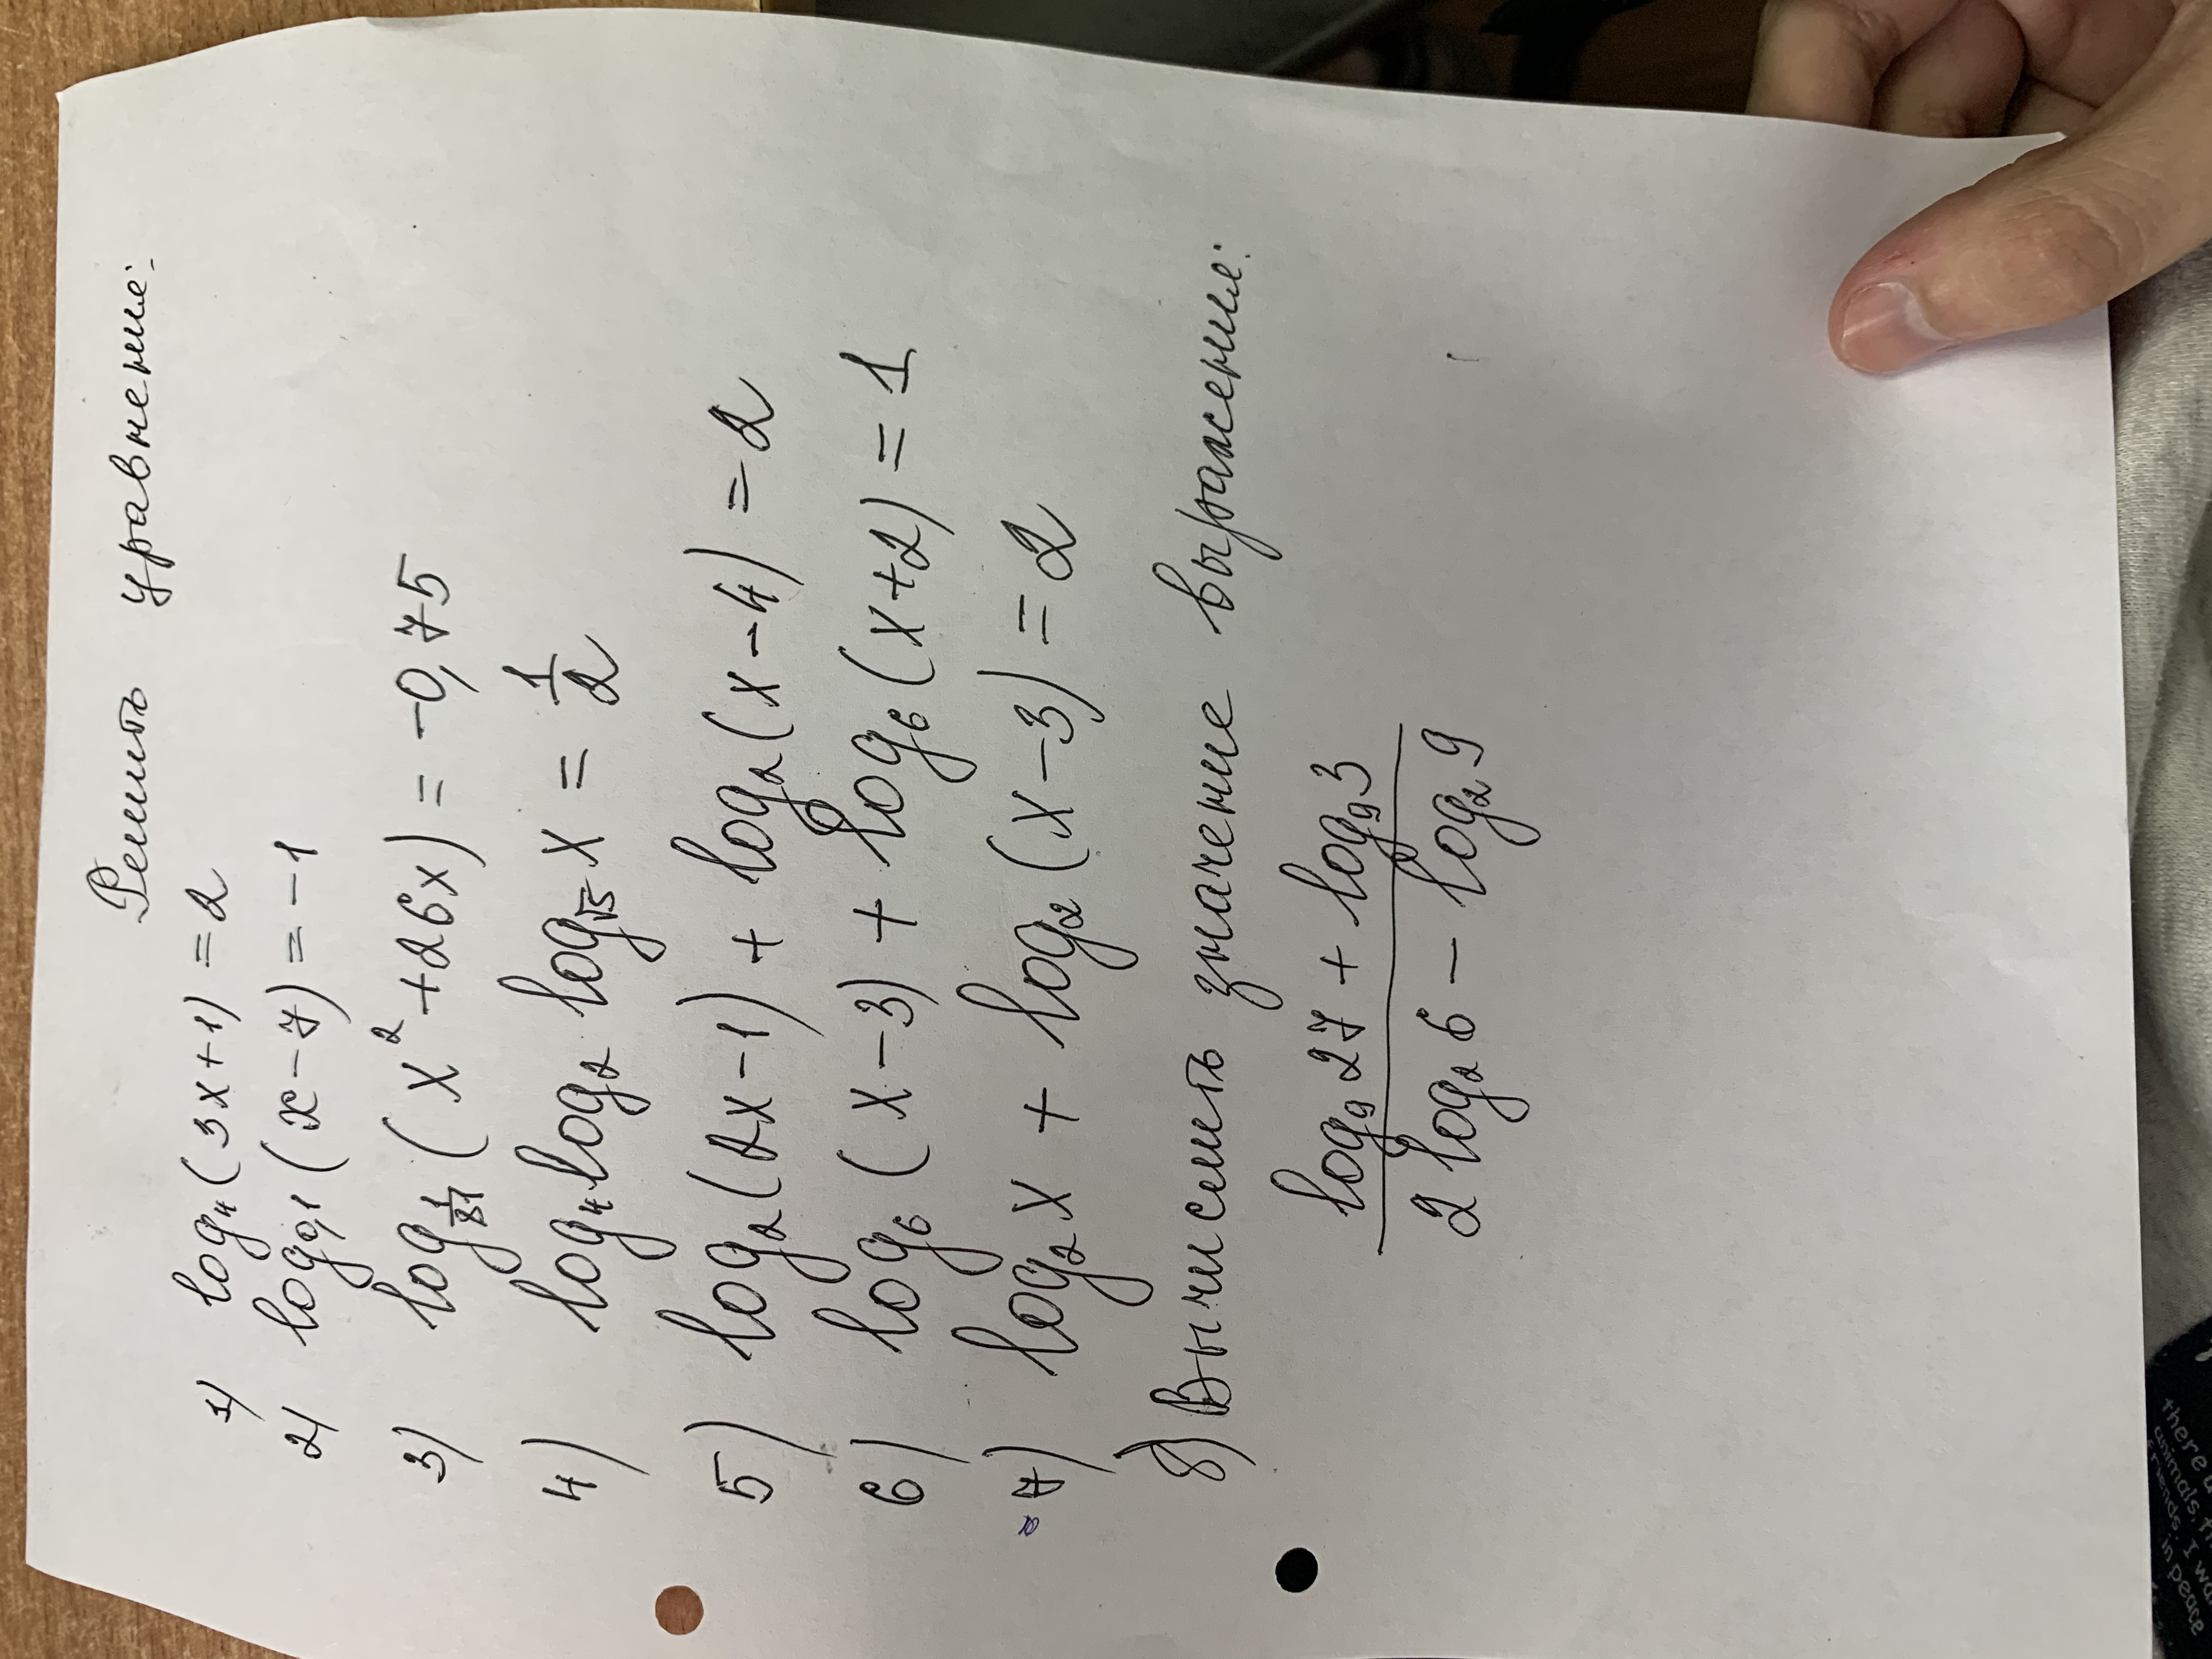 Решить уравнение:
1) log₄(3x+1)=2
2) log₀,₁(x-7)=-1
3) log_{1/81}(x²+26x)=-0,75
4) log₄ log₂ log_{√5} x = 1/2
5) log₂(2x-1)+log₂(x-4)=2
6) log₆(x-3)+log₆(x+2)=1
7) log₂x + log₂(x-3)=2
8) Вычислить значение выражения:
log₉27 + log₉3
2 log₂6 - log₂9
there
animals,
friends. I wa
in peace